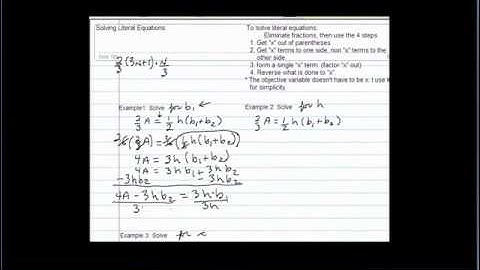 Solving Literal Equations
To solve literal equations,
Eliminate fractions, then use the 4 steps
1. Get "x" out of parentheses
2. Get "x" terms to one side, non "x" terms to the
other side.
3. form a single "x" term. (factor "x" out)
4. Reverse what is done to "x".
* The objective variable doesn't have to be x. I use x
for simplicity
Example1 Solve for b₁ ←
2/3 A = 1/2 h(b₁+b₂)
4A = 3h(b₁+b₂)
4A = 3hb₁ + 3hb₂
-3hb₂ -3hb₂
4A - 3hb₂ = 3h·b₁
3 3h
Example 2 Solve for h
2/3 A = 1/2 h(b₁+b₂)
Example 3 Solve for x